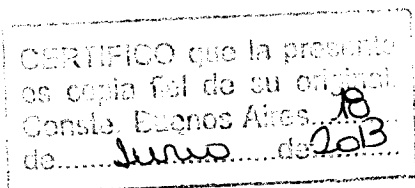 CERTIFICO que la presente
es copia fiel de su original.
Conste. Buenos Aires...18...
de......Junio......de2013